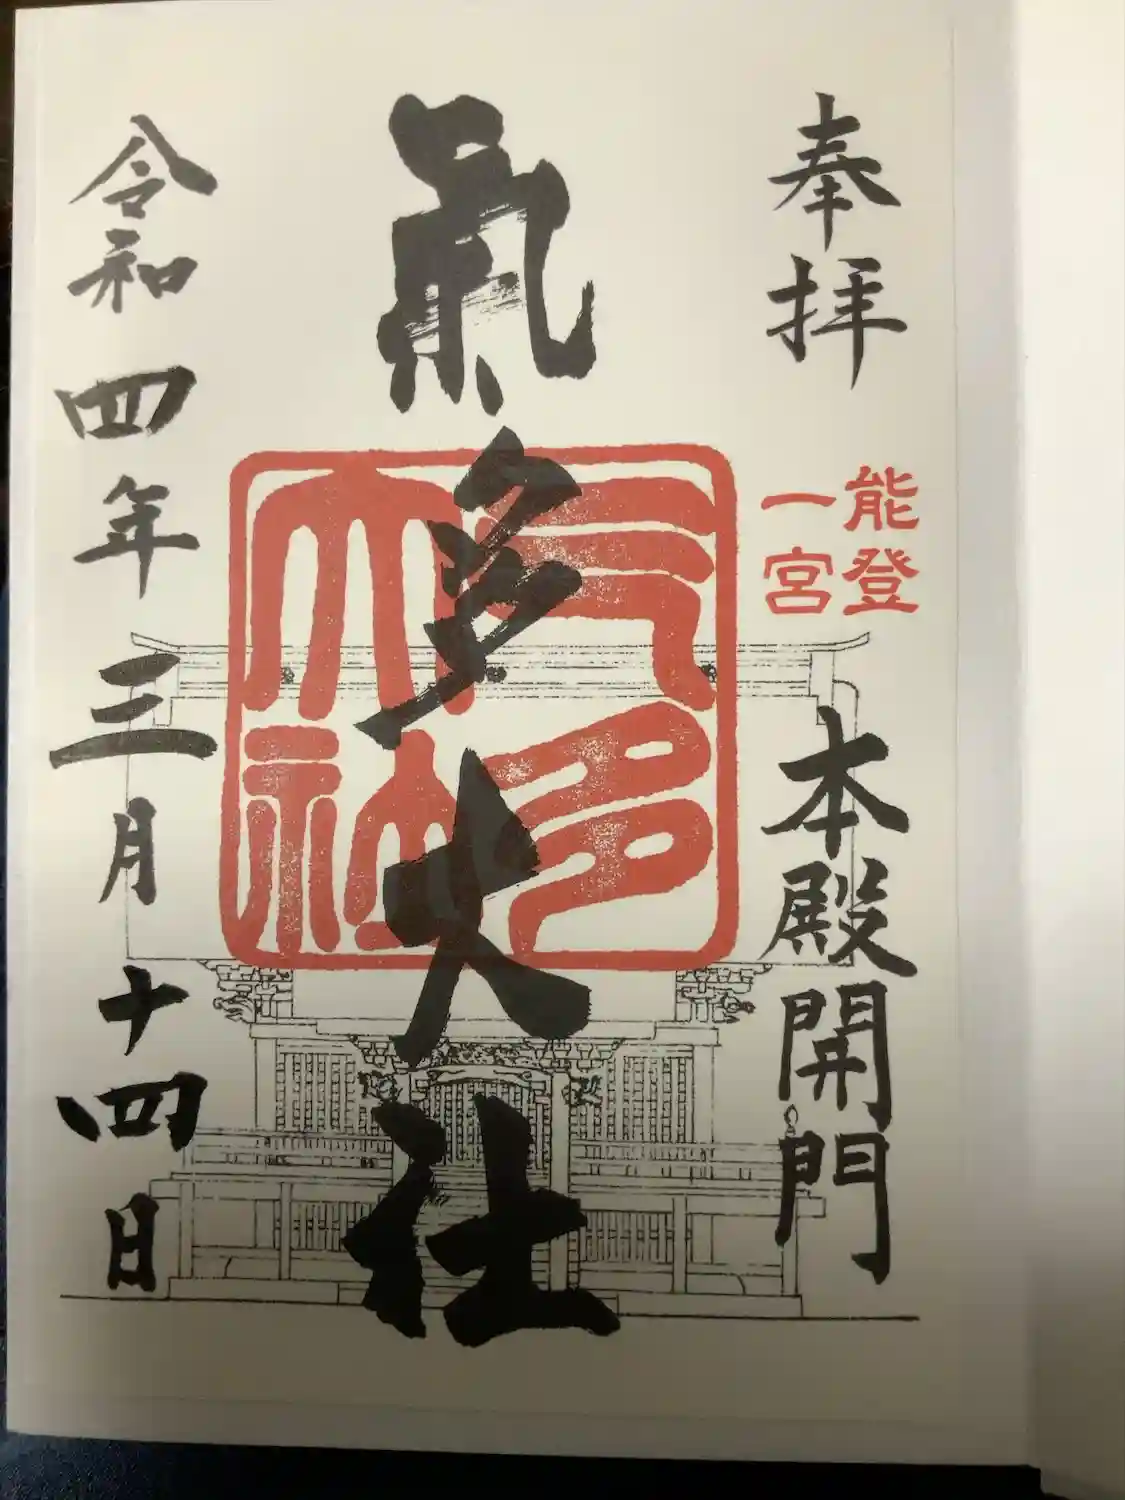 奉拝
能登
一宮
本殿開門
氣多大社
气多
大社
令和四年三月十四日